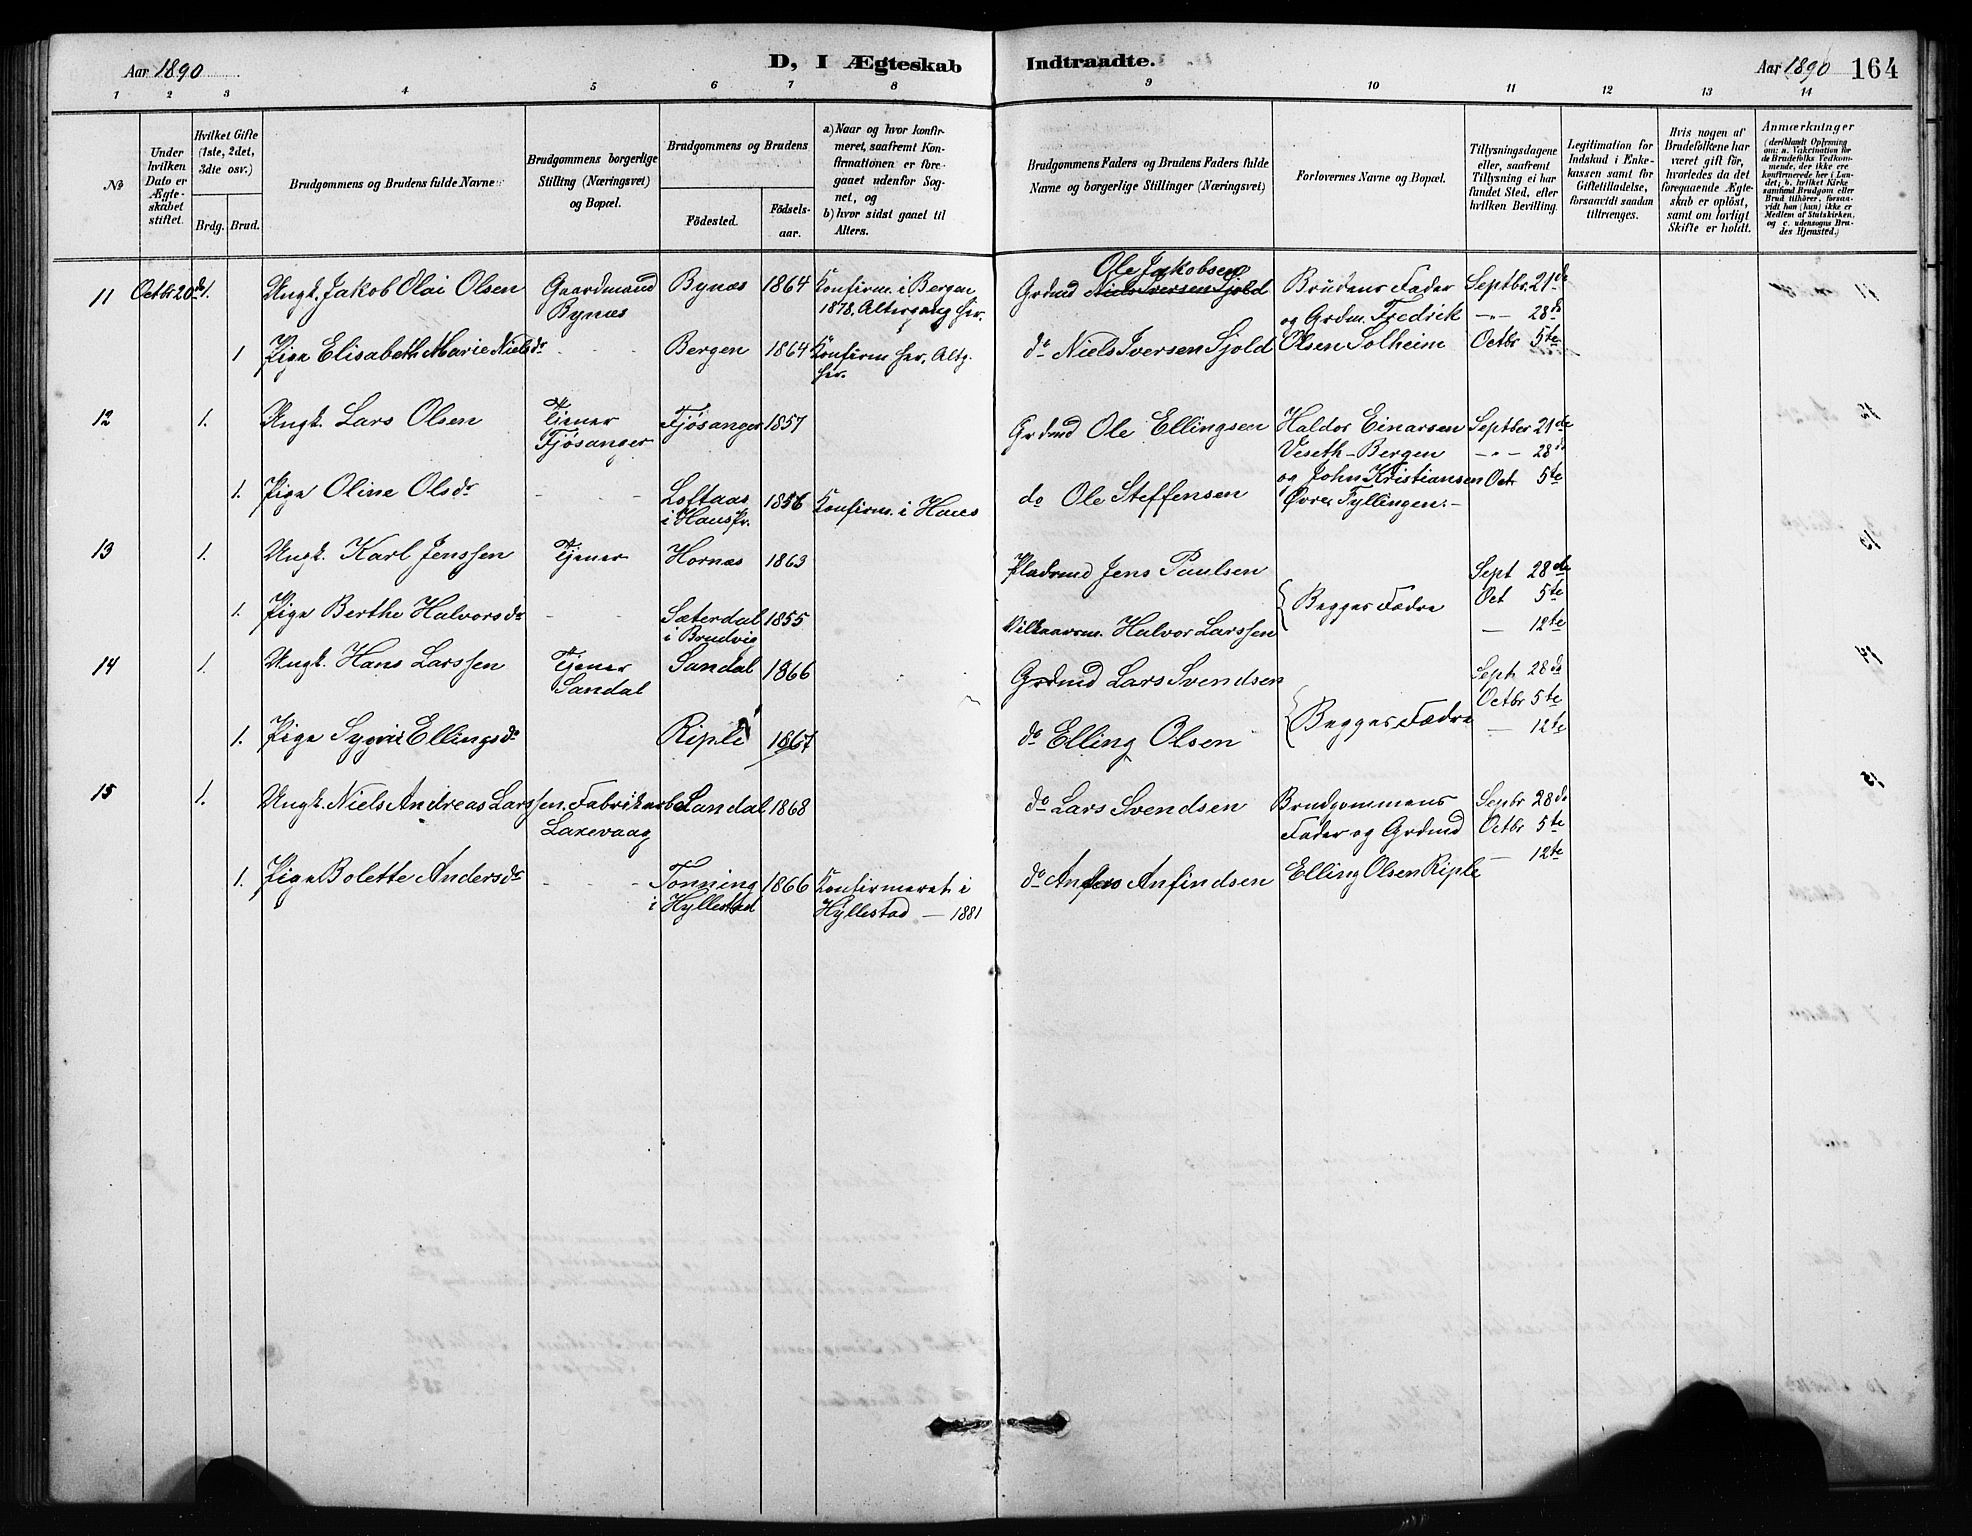 Aar 1890
D, I Ægteskab
Indtraadte.
Aar 1890 164
1 2 3 4 5 6 7 8 9 10 11 12 13 14
No
Under hvilken Dato er Ægteskabet stiftet.
Hvilket Gifte (1ste, 2det, 3dte osv.)
Brdg. Brud.
Brudgommens og Brudens fulde Navne
Brudgommens borgerlige Stilling (Næringsvei) og Bopæl.
Brudgommens og Brudens
Fødested.
Fødselsaar.
a) Naar og hvor konfirmeret, saafremt Konfirmationen er foregaaet udenfor Sognet, og
b) hvor sidst gaaet til Alters.
Brudgommens Faders og Brudens Faders fulde Navne og borgerlige Stillinger (Næringsvei)
Forlovernes Navne og Bopæl.
Tillysningsdagene eller, saafremt Tillysning ei har fundet Sted, efter hvilken Bevilling.
Legitimation for Indskud i Enkekassen samt for Giftetilladelse, forsaavidt saadan tiltrænges.
Hvis nogen af Brudefolkene har været gift før, hvorledes da det foregaaende Ægteskab er opløst, samt om lovligt Skifte er holdt.
Anmærkninger (deriblandt Oplysning om: a. Vakcination for de Brudefolks Vedkommende, der ikke ere konfirmerede her i Landet; b. hvilket Kirkesamfund Brudgom eller Brud tilhører, forsaavidt han (hun) ikke er Medlem af Statskirken, og c. udensogns Brudes Hjemsted.)
11 Octbr 20de 1. Ungk. Jakob Olai Olsen Gaardmand Bynæs 1864 Konfirm. i Bergen Grdmd Niels Iversen Sjold Ole Jakobsen Brudens Fader Septbr. 21de
Bynæs 1878. Altergang her. og Grdm. Fredrik –"– 28de
1 Pige Elisabeth Marie Nielsdr - - - Bergen 1864 Konfirm her, Altg. do Niels Iversen Sjold Olsen Solheim Octbr 5te
her.
12 1. Ungk. Lars Olsen Tjener Fjøsanger 1857 Grdmd Ole Ellingsen Haldor Einarsen Septber 21de
Fjøsanger Veseth-Bergen –"– 28de
1. Pige Oline Olsdr - - Loftaas 1856 Konfirm. i Haus do Ole Steffensen og John Kristiansen Oct 5te
i Haus Pr. Øvre Fyllingen.–
13 1. Ungk. Karl Jenssen Tjener Hornæs 1863 Pladsmd Jens Paulsen Sept 28de
Oct 5te
1. Pige Berthe Halvorsdr - - Sæterdal 1855 Vilkaarsm. Halvor Larssen Begges Fædre – 12te
i Brudvig
14 1. Ungk. Hans Larssen Tjener Sandal 1866 Grdmd Lars Svendsen Sept 28de
Sandal Octbr 5te
1. Pige Ellingsdr Riple 1867 do Elling Olsen Begges Fædre – 12te
15 1. Ungk. Niels Andreas Larssen. Fabrikarb. Sandal 1868 do Lars Svendsen Brudgommens Sepbr 28de
Laxevaag Fader og Grdmd Octbr 5te
1. Pige Bolette Andersdr - - - Tonning 1866 Konfirmeret i do Anders Anfindsen Elling Olsen Riple – 12te
i Hyllestad Hyllestad – 1881